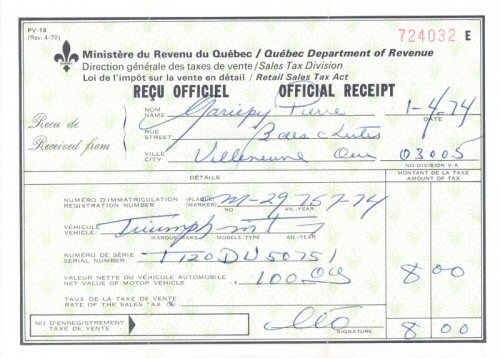 PV-16
(Rev. 4-70)
724032 E
QUÉBEC
Ministère du Revenu du Québec / Québec Department of Revenue
Direction générale des taxes de vente / Sales Tax Division
Loi de l'impôt sur la vente en détail / Retail Sales Tax Act
REÇU OFFICIEL OFFICIAL RECEIPT
Reçu de
Received from
NOM
NAME
Gariepy Pierre
1-4-74
DATE
RUE
STREET
3 des chutes
VILLE
CITY
Villeneuve Que
03005
NO DIVISION V-A
DÉTAILS
MONTANT DE LA TAXE
AMOUNT OF TAX
NUMÉRO D'IMMATRICULATION (PLAQUE)
REGISTRATION NUMBER (MARKER)
M-29757-74
NO AN.-YEAR
VÉHICULE
VEHICLE:
Triumph
MARQUE-MAKE MODÈLE-TYPE AN.-YEAR
NUMÉRO DE SÉRIE
SERIAL NUMBER
T120DU50751
VALEUR NETTE DU VÉHICULE AUTOMOBILE
NET VALUE OF MOTOR VEHICLE
$ 100.00
8 00
TAUX DE LA TAXE DE VENTE
RATE OF THE SALES TAX (%)
NO D'ENREGISTREMENT
TAXE DE VENTE
SIGNATURE
8 00